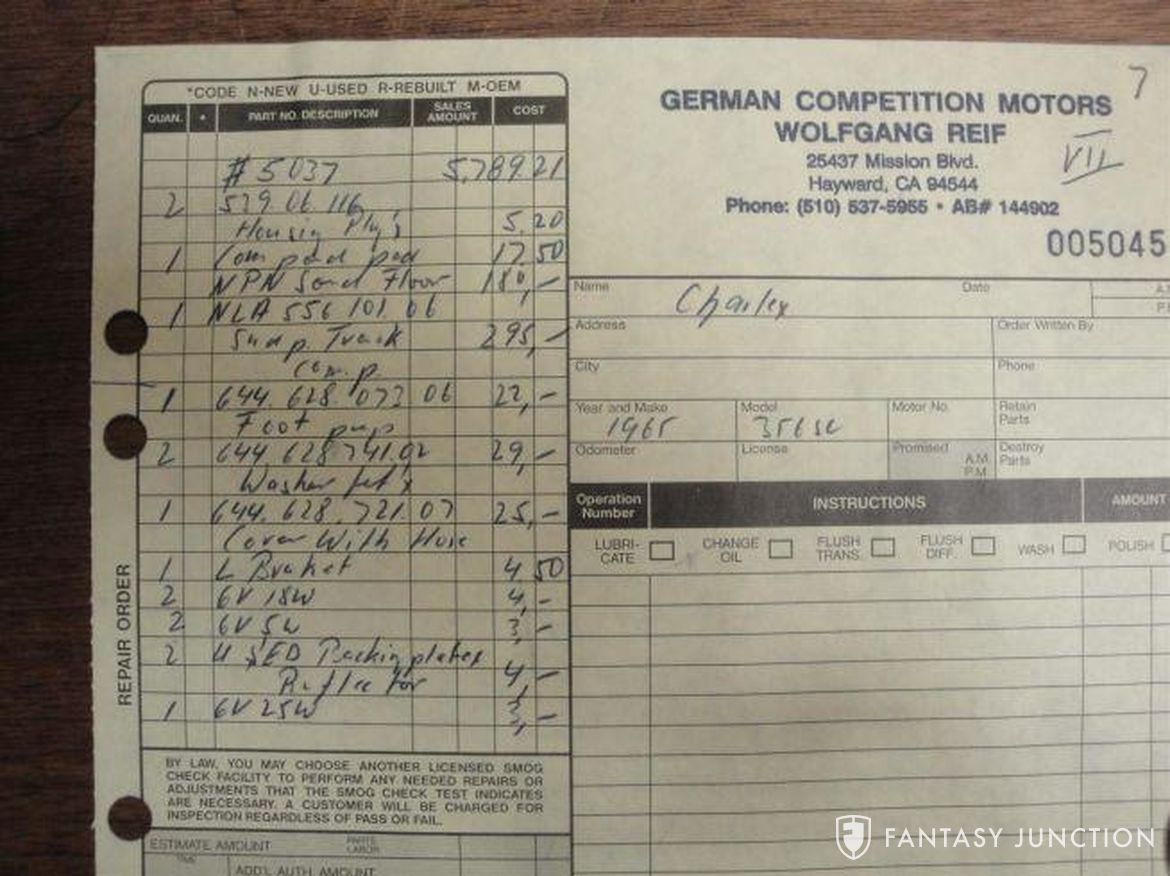 *CODE N-NEW U-USED R-REBUILT M-OEM
QUAN. * PART NO. DESCRIPTION SALES AMOUNT COST
#5037 5,789.21
2 539.06.116
Housing Plg's 5.20
1 Com pad 17.50
NPN Sond Floor 180,-
1 NLA 556 101 06
Track 295,-
Comp.
1 644.628.073 06 22,-
Foot pup
2 644 628 741.02 29,-
Washer Jet's
1 644.628.721.07 25,-
Cover With Hose
1 L Braket 4 50
2 6V 18W 4,-
2 6V 5W 3,-
2 USED Backing plates
Reflector 4,-
1 6V 25W 3,-
BY LAW, YOU MAY CHOOSE ANOTHER LICENSED SMOG
CHECK FACILITY TO PERFORM ANY NEEDED REPAIRS OR
ADJUSTMENTS THAT THE SMOG CHECK TEST INDICATES
ARE NECESSARY. A CUSTOMER WILL BE CHARGED FOR
INSPECTION REGARDLESS OF PASS OR FAIL.
ESTIMATE AMOUNT PARTS LABOR
TIME
ADD'L AUTH AMOUNT
REPAIR ORDER
7
GERMAN COMPETITION MOTORS
WOLFGANG REIF
VII
25437 Mission Blvd.
Hayward, CA 94544
Phone: (510) 537-5955 • AB# 144902
005045
Name Charley Date
Address Order Written By
City Phone
Year and Make 1965 Model 356sc Motor No. Retain Parts
Odometer License Promised A.M. P.M. Destroy Parts
Operation Number INSTRUCTIONS AMOUNT
LUBRI-CATE CHANGE OIL FLUSH TRANS. FLUSH DIFF. WASH POLISH
FANTASY JUNCTION